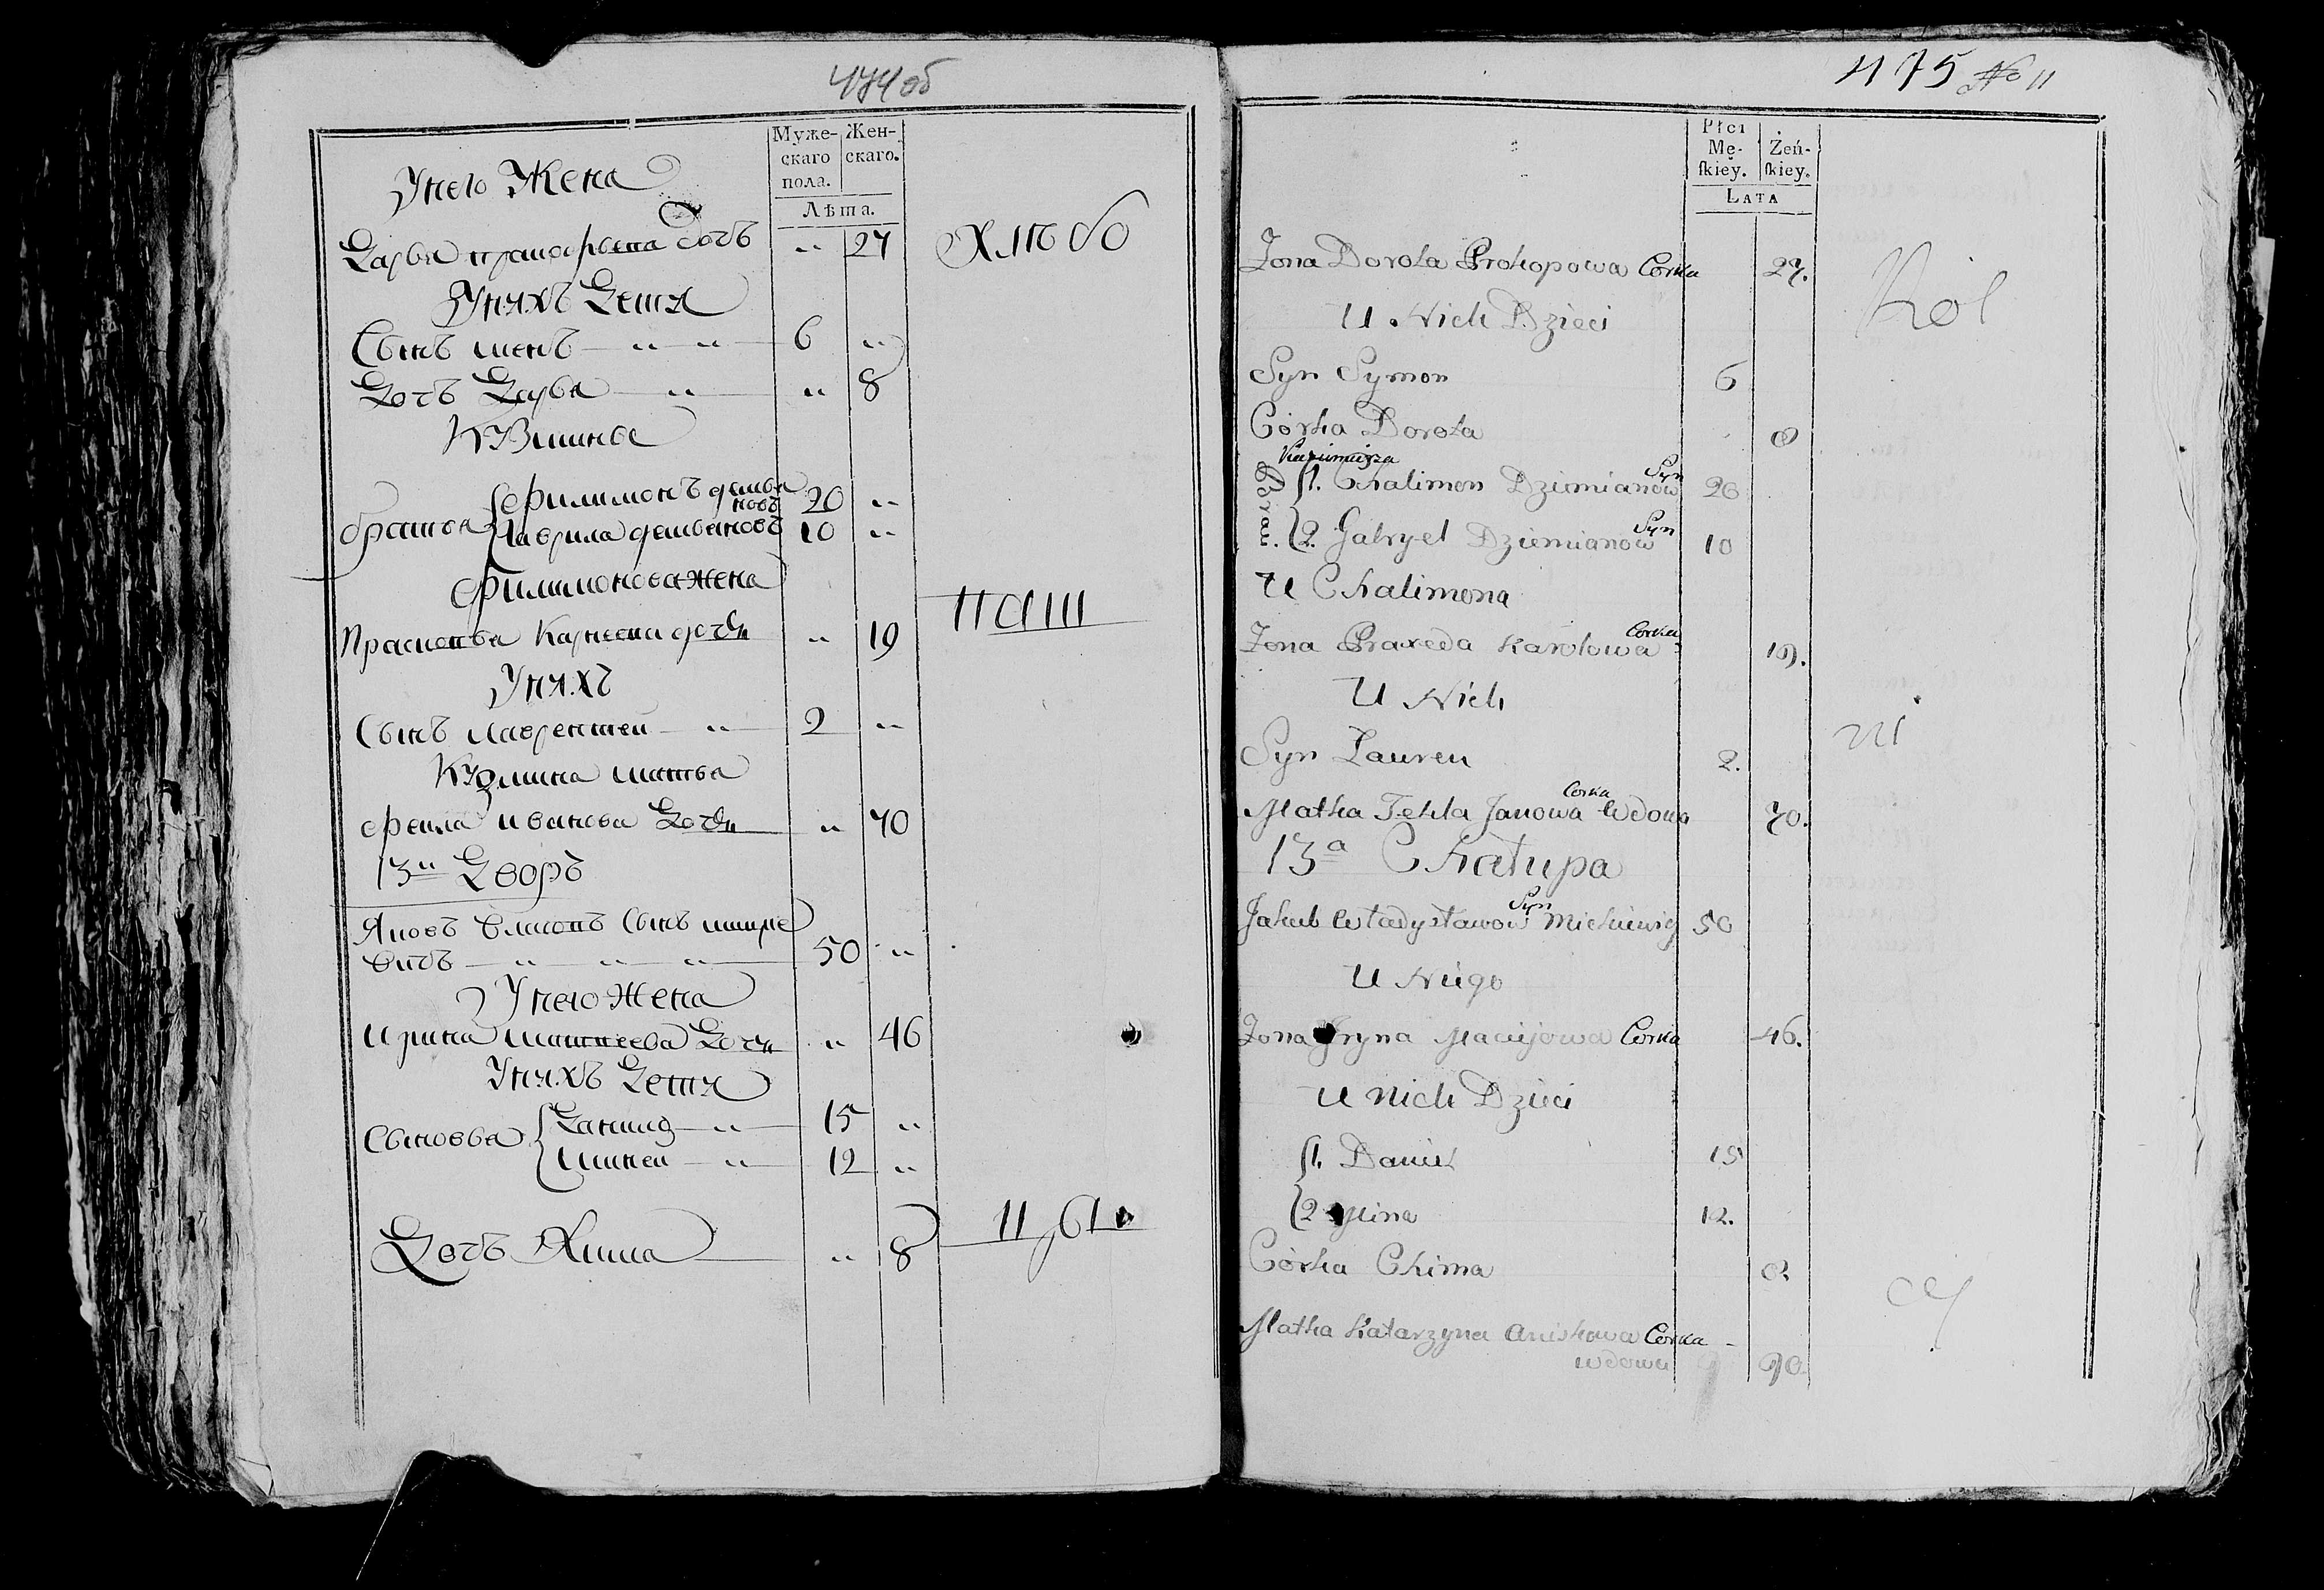 474 об
Муже-
скаго
пола.
Жен-
скаго.
Лѣта.
Унего Жена
Дарья дочь " 27
Хлѣбо
Унихъ Дети
Сынъ 6 "
Дочь Дарья " 8
Кузмины
братья
Филимонъ демья
новъ 20 "
Гаврила демьяновъ 10 "
Филимонова жена
Прасковья Карнеева дочь " 19
паш
Унихъ
Сынъ Лаврентей 2 "
Кузмина матва
Фекла иванова Дочь " 70
13й Дворъ
Яковъ Власовъ Сынъ мицке
вичъ 50 "
Унего Жена
ирина Матвеева Дочь " 46
Унихъ Дети
Сыновья
Данила 15 "
Миней 12 "
Дочь Хима " 8
475 No 11
Płci
Mę-
skiey.
Żeń-
skiey.
Lata
Zona Dorota Prokopowa Corka 27.
Rol
U Nich Dzieci
Syn Symon 6
Córka Dorota 8
Kazimierza
Braw.
1. Chalimon Dziemianow Syn 20
2. Gabryel Dziemianow Syn 10
U Chalimona
Zona Praxeda Karolowa Corka 19.
U Nich
ni
Syn Lauren 2.
Matka Tekla Janowa Corka Wdowa 70.
13a Chałupa
Jakub Władysławow Syn Mickiewicz 50
U Niego
Zona Iryna Maciejowa Corka 46.
U Nich Dzieci
1. Daniel 15
2 Mina 12.
Córka Chima 8
cy
Matka Katarzyna Corka
wdowa 90